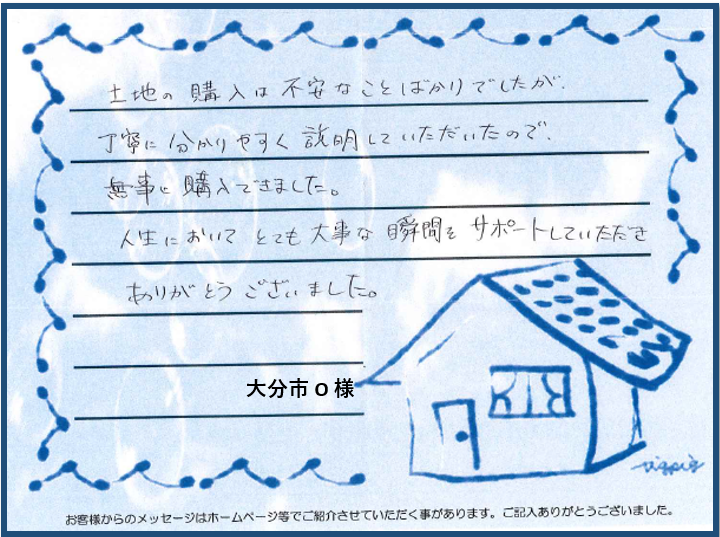 土地の購入は不安なことばかりでしたが、
丁寧に分かりやすく説明していただいたので、
無事に購入できました。
人生においてとても大事な瞬間をサポートしていただき
ありがとうございました。
大分市 O 様
お客様からのメッセージはホームページ等でご紹介させていただく事があります。ご記入ありがとうございました。